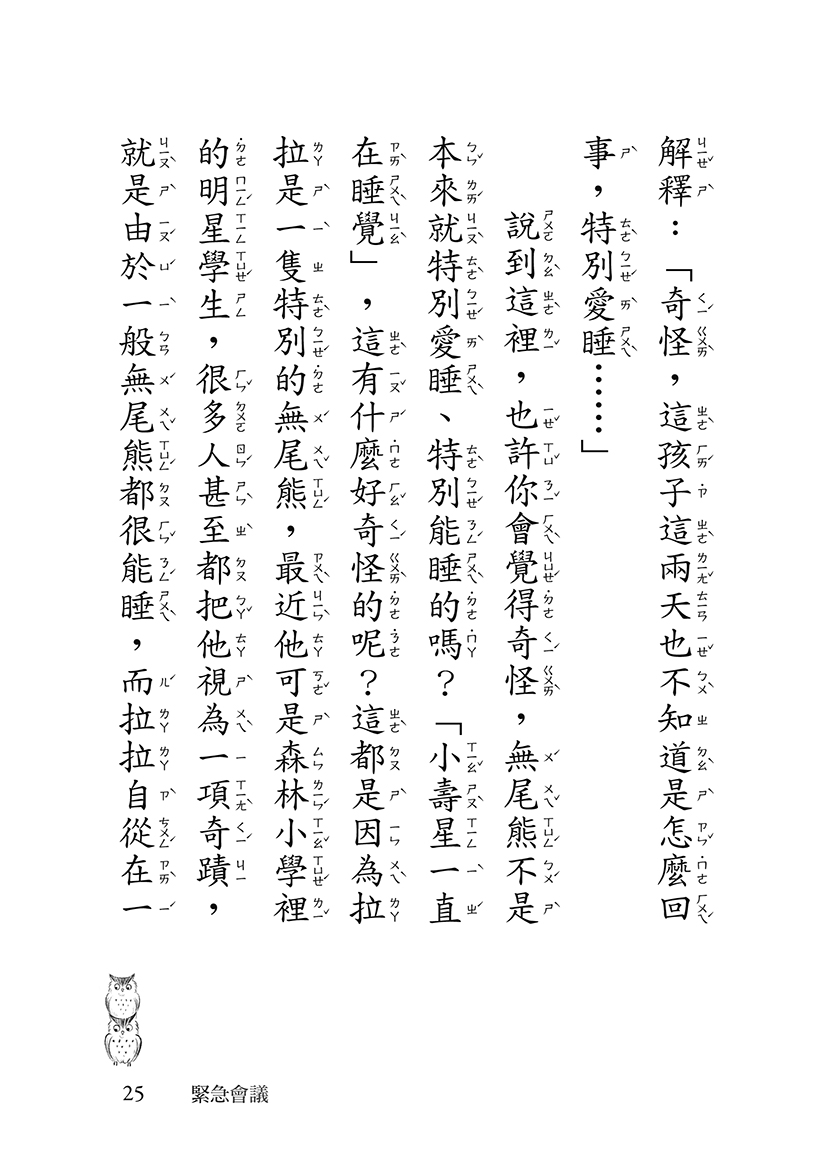 解釋：「奇怪，這孩子這兩天也不知道是怎麼回
事，特別愛睡……」
說到這裡，也許你會覺得奇怪，無尾熊不是
本來就特別愛睡、特別能睡的嗎？「小壽星一直
在睡覺」，這有什麼好奇怪的呢？這都是因為拉
拉是一隻特別的無尾熊，最近他可是森林小學裡
的明星學生，很多人甚至都把他視為一項奇蹟，
就是由於一般無尾熊都很能睡，而拉拉自從在一
25 緊急會議